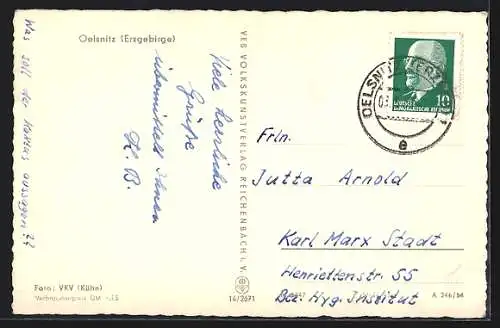 Oelsnitz (Erzgebirge)
Was soll der Kortes aussagen??
Viele herzliche
Grüße
übermittelt Ihnen
H. B.
VEB VOLKSKUNSTVERLAG REICHENBACH I. V.
OELSNITZ (ERZGEB)
10
e
Frln.
Jutta Arnold
Karl Marx Stadt
Henriettenstr. 55
Bez. Hyg. Institut
Foto: VKV (Kühn)
Verbraucherpreis DM
14/2671
A 246/64